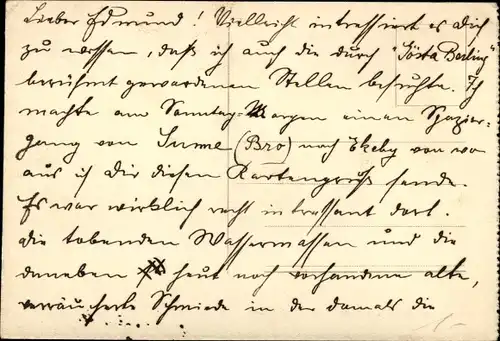 Lieber Edmund! Vielleicht intressiert es Dich
zu wissen, daß ich auch die durch "Gösta Berling"
berühmt gewordenen Stellen besuchte. Ich
machte am Sonntag-Morgen einen Spazier-
gang von Sunne (Bro) nach Ekeby von wo
aus ich Dir diesen Kartengruß sende.
Es war wirklich recht intressant dort.
Die tobenden Wassermassen und die
daneben heut noch vorhandene alte,
verräucherte Schmiede in der damals die